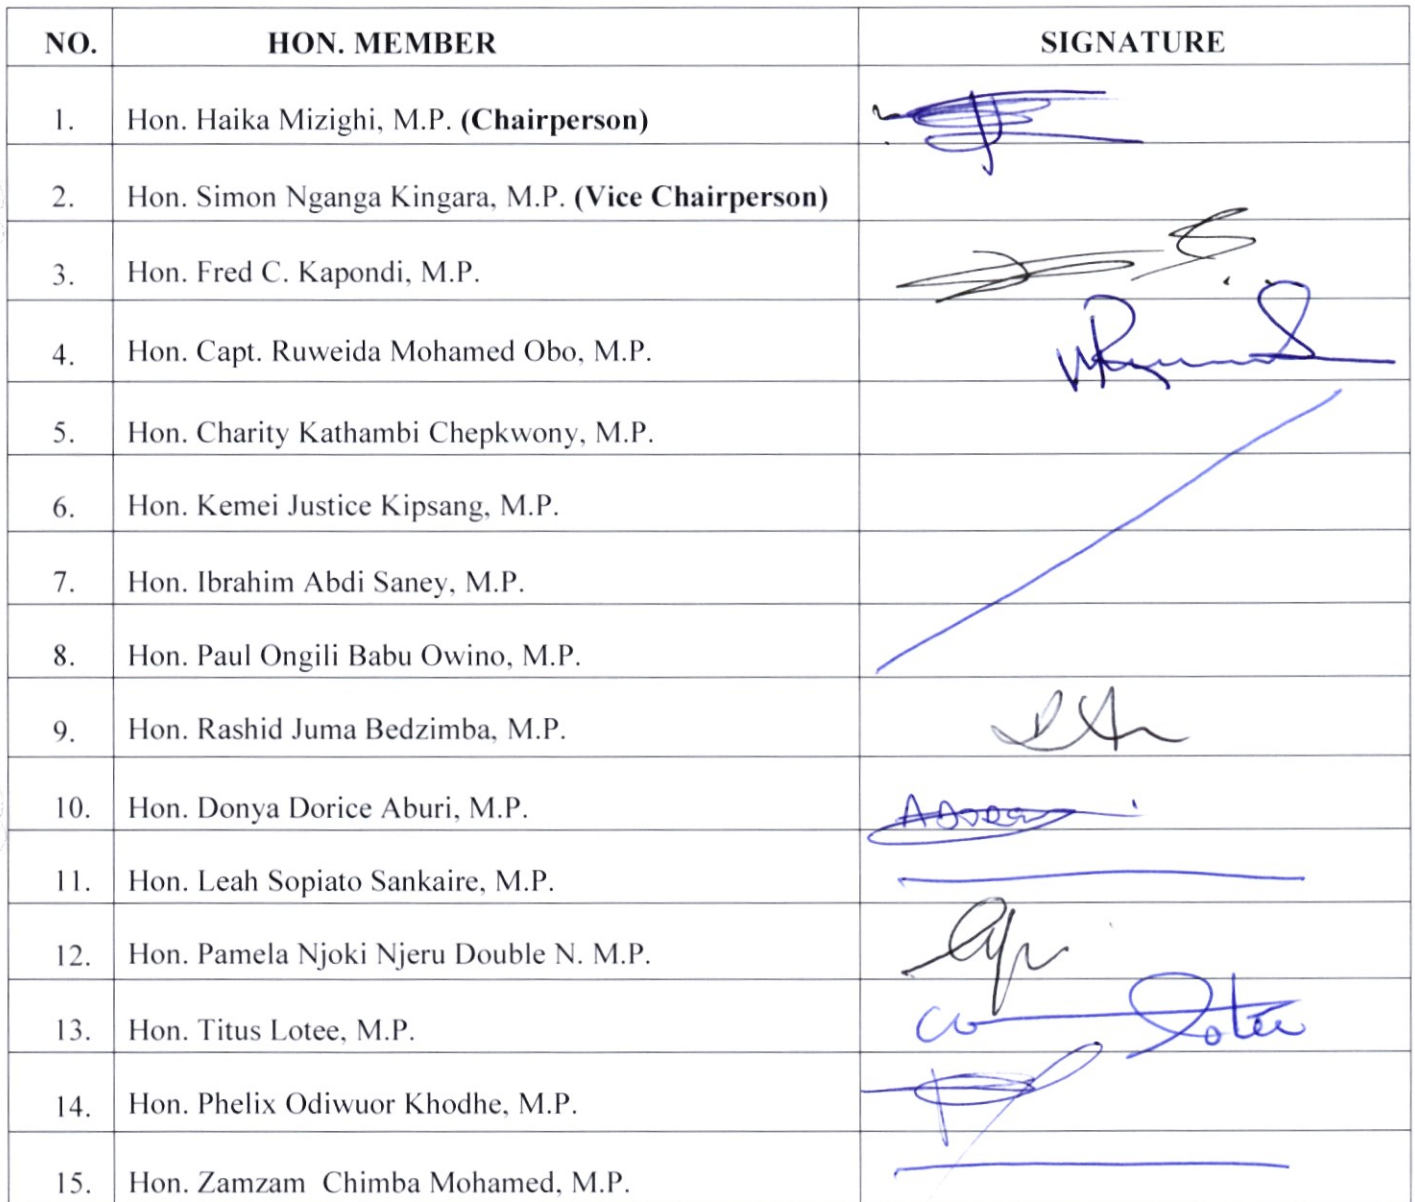 NO. HON. MEMBER SIGNATURE
1. Hon. Haika Mizighi, M.P. (Chairperson)
2. Hon. Simon Nganga Kingara, M.P. (Vice Chairperson)
3. Hon. Fred C. Kapondi, M.P.
4. Hon. Capt. Ruweida Mohamed Obo, M.P.
5. Hon. Charity Kathambi Chepkwony, M.P.
6. Hon. Kemei Justice Kipsang, M.P.
7. Hon. Ibrahim Abdi Saney, M.P.
8. Hon. Paul Ongili Babu Owino, M.P.
9. Hon. Rashid Juma Bedzimba, M.P.
10. Hon. Donya Dorice Aburi, M.P.
11. Hon. Leah Sopiato Sankaire, M.P.
12. Hon. Pamela Njoki Njeru Double N. M.P.
13. Hon. Titus Lotee, M.P.
14. Hon. Phelix Odiwuor Khodhe, M.P.
15. Hon. Zamzam Chimba Mohamed, M.P.